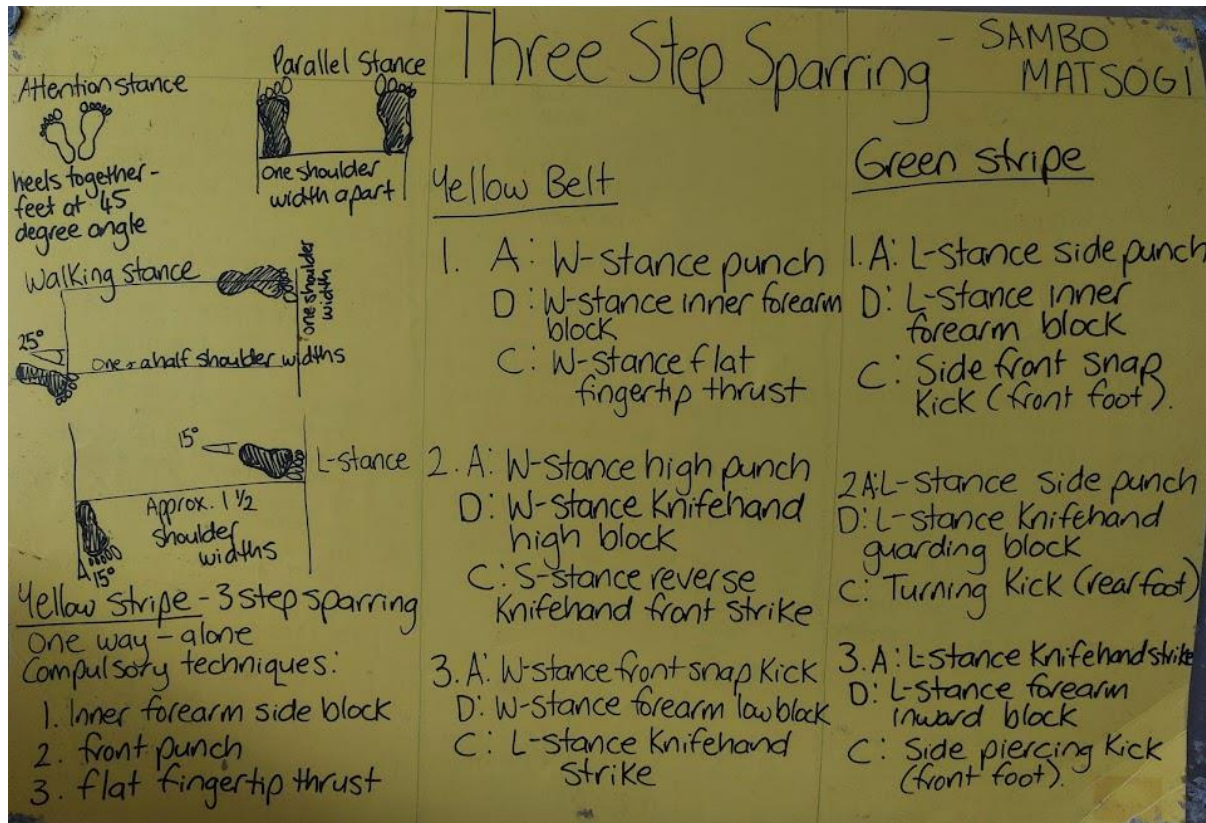 Three Step Sparring
- SAMBO
MATSOGI
Attention stance
heels together -
feet at 45
degree angle
Parallel Stance
one shoulder
width apart
Walking stance
one shoulder
width
25°
One + a half shoulder widths
15°
L-stance
Approx. 1 1/2
shoulder
widths
15°
Yellow stripe - 3 step sparring
One way - alone
Compulsory techniques:
1. Inner forearm side block
2. front punch
3. flat fingertip thrust
Yellow Belt
1. A: W-stance punch
D: W-stance inner forearm
block
C: W-stance flat
fingertip thrust
2. A: W-stance high punch
D: W-stance Knifehand
high block
C: S-stance reverse
Knifehand front strike
3. A: W-stance front snap Kick
D: W-stance forearm low block
C: L-stance Knifehand
strike
Green stripe
1. A: L-stance side punch
D: L-stance inner
forearm block
C: Side front snap
Kick (front foot).
2 A: L-stance side punch
D: L-stance Knifehand
guarding block
C: Turning Kick (rear foot)
3. A: L-stance Knifehand strike
D: L-stance forearm
inward block
C: Side piercing Kick
(front foot).